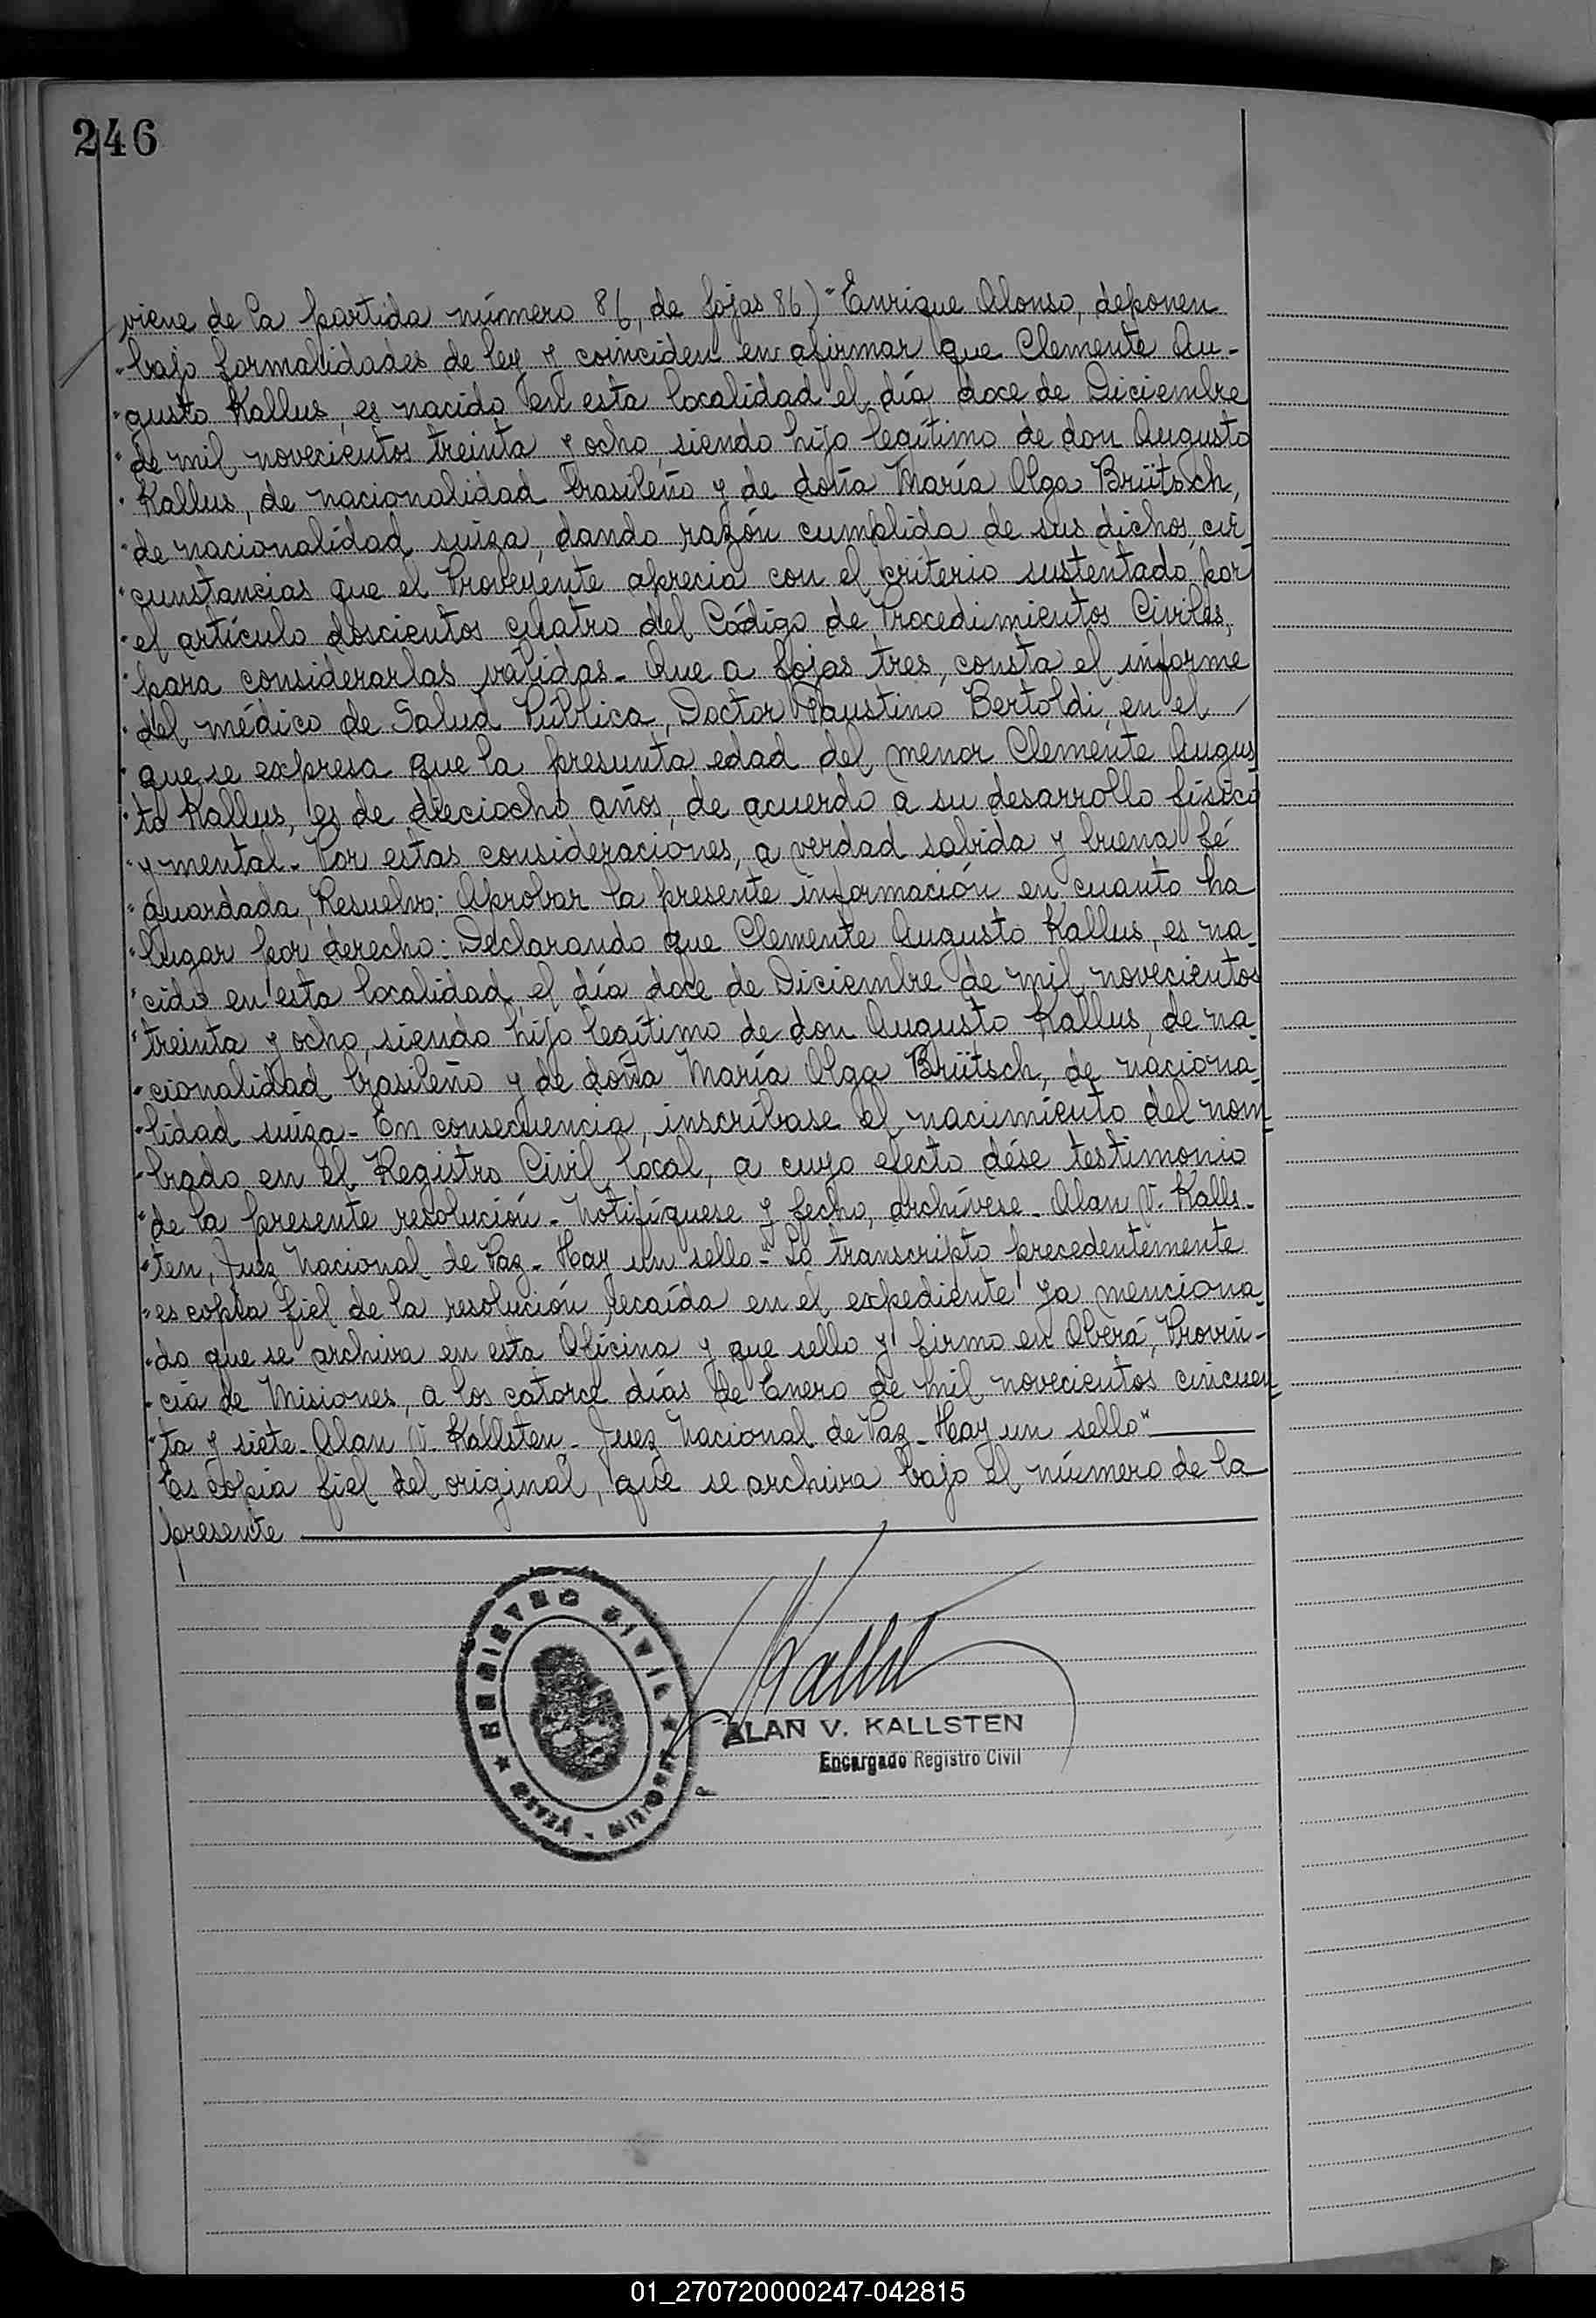 246
viene de la partida número 86, de fojas 86) "Enrique Alonso, deponen
"bajo formalidades de ley y coinciden en afirmar que Clemente Au-
"gusto Kallus, es nacido en esta localidad el día doce de Diciembre
"de mil novecientos treinta y ocho, siendo hijo legítimo de don Augusto
"Kallus, de nacionalidad brasileño y de doña María Olga Brütsch,
"de nacionalidad suiza, dando razón cumplida de sus dichos, cir-
"cunstancias que el Proveyente aprecia con el criterio sustentado por
"el artículo doscientos cuatro del Código de Procedimientos Civiles,
"para considerarlas válidas. Que a fojas tres, consta el informe
"del médico de Salud Pública, Doctor Faustino Bertoldi, en el
"que se expresa que la presunta edad del menor Clemente Augus-
"to Kallus, es de dieciocho años, de acuerdo a su desarrollo físico
"y mental. Por estas consideraciones, a verdad sabida y buena fé
"guardada, Resuelvo: Aprobar la presente información en cuanto ha
"lugar por derecho: Declarando que Clemente Augusto Kallus, es na-
"cido en esta localidad el día doce de Diciembre de mil novecientos
"treinta y ocho, siendo hijo legítimo de don Augusto Kallus, de na-
"cionalidad brasileño y de doña María Olga Brütsch, de naciona-
"lidad suiza. En consecuencia, inscríbase el nacimiento del nom-
"brado en el Registro Civil local, a cuyo efecto dése testimonio
"de la presente resolución. Notifíquese y fecho, archívese. Alan V. Kalls-
"ten, Juez Nacional de Paz. Hay un sello". Lo transcripto precedentemente
"es copia fiel de la resolución recaída en el expediente ya menciona-
"do que se archiva en esta Oficina y que sello y firmo en Oberá, Provin-
"cia de Misiones, a los catorce días de Enero de mil novecientos cincuen-
"ta y siete. Alan V. Kallsten. Juez Nacional de Paz. Hay un sello"
Es copia fiel del original, que se archiva bajo el número de la
presente
REGISTRO CIVIL
MISIONES
ALAN V. KALLSTEN
Encargado Registro Civil
01_270720000247-042815